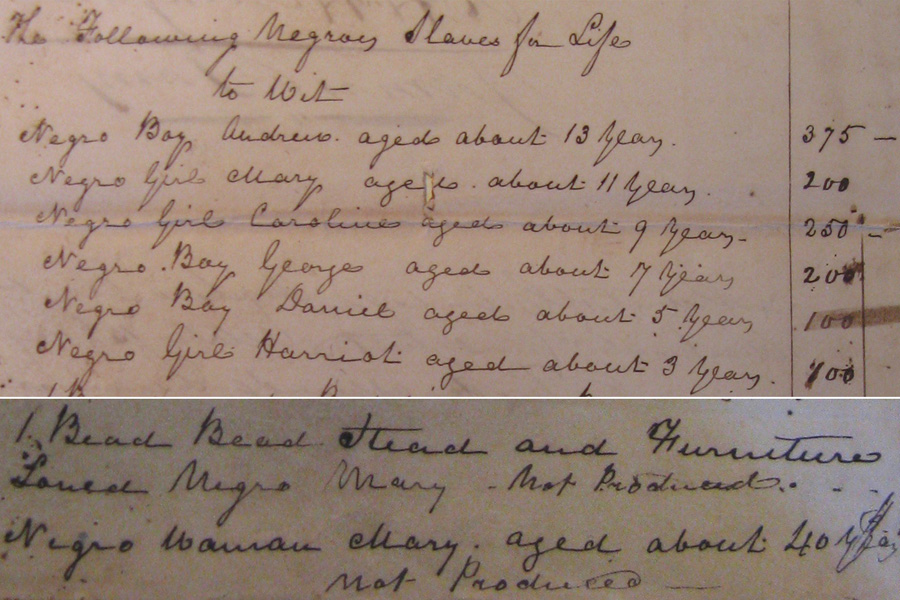 The Following Negroes Slaves for Life
to Wit
Negro Boy Andrew. aged about 13 Years. 375 —
Negro Girl Mary aged. about 11 Years. 200
Negro Girl Caroline aged about 9 Years- 250 -
Negro Boy George aged about 7 Years 200
Negro Boy Daniel aged about 5 Years 100
Negro Girl Harriot aged about 3 Years. 100
1 Bead Bead Stead and Furniture
Loned Negro Mary - Not Produced.
Negro Woman Mary. aged about 40 Years
not Produced —